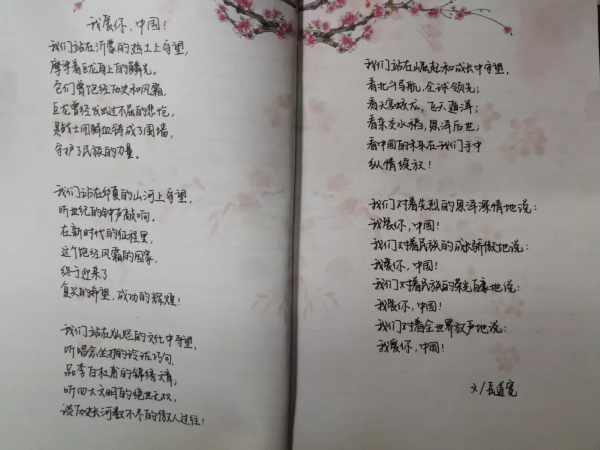 我爱你，中国！
我们站在沂蒙的热土上守望，
摩挲着巨龙身上的鳞光。
它们曾饱经历史和风霜，
巨龙曾经发出过不屈的悲怆，
是战士用鲜血铸成了围墙，
守护了民族的力量。
我们站在华夏的山河上守望，
听世纪的钟声敲响。
在新时代的征程里，
这个饱经风霜的国家，
终于迎来了
复兴的希望，成功的辉煌！
我们站在灿烂的文化中守望，
听唱念坐打的诙谐巧句，
品李白杜甫的锦绣文章，
听四大文明的绝世无双，
谈历史长河数不尽的傲人过往！
我们站在崛起和成长中守望，
看北斗导航，全球领先；
看天宫蛟龙，飞天遁洋；
看杂交水稻，恩泽后世；
看中国的未来在我们手中
纵情绽放！
我们对着先烈的恩泽深情地说：
我爱你，中国！
我们对着民族的成长骄傲地说：
我爱你，中国！
我们对着民族的荣光自豪地说：
我爱你，中国！
我们对着全世界放声地说：
我爱你，中国！
文/岳道宽